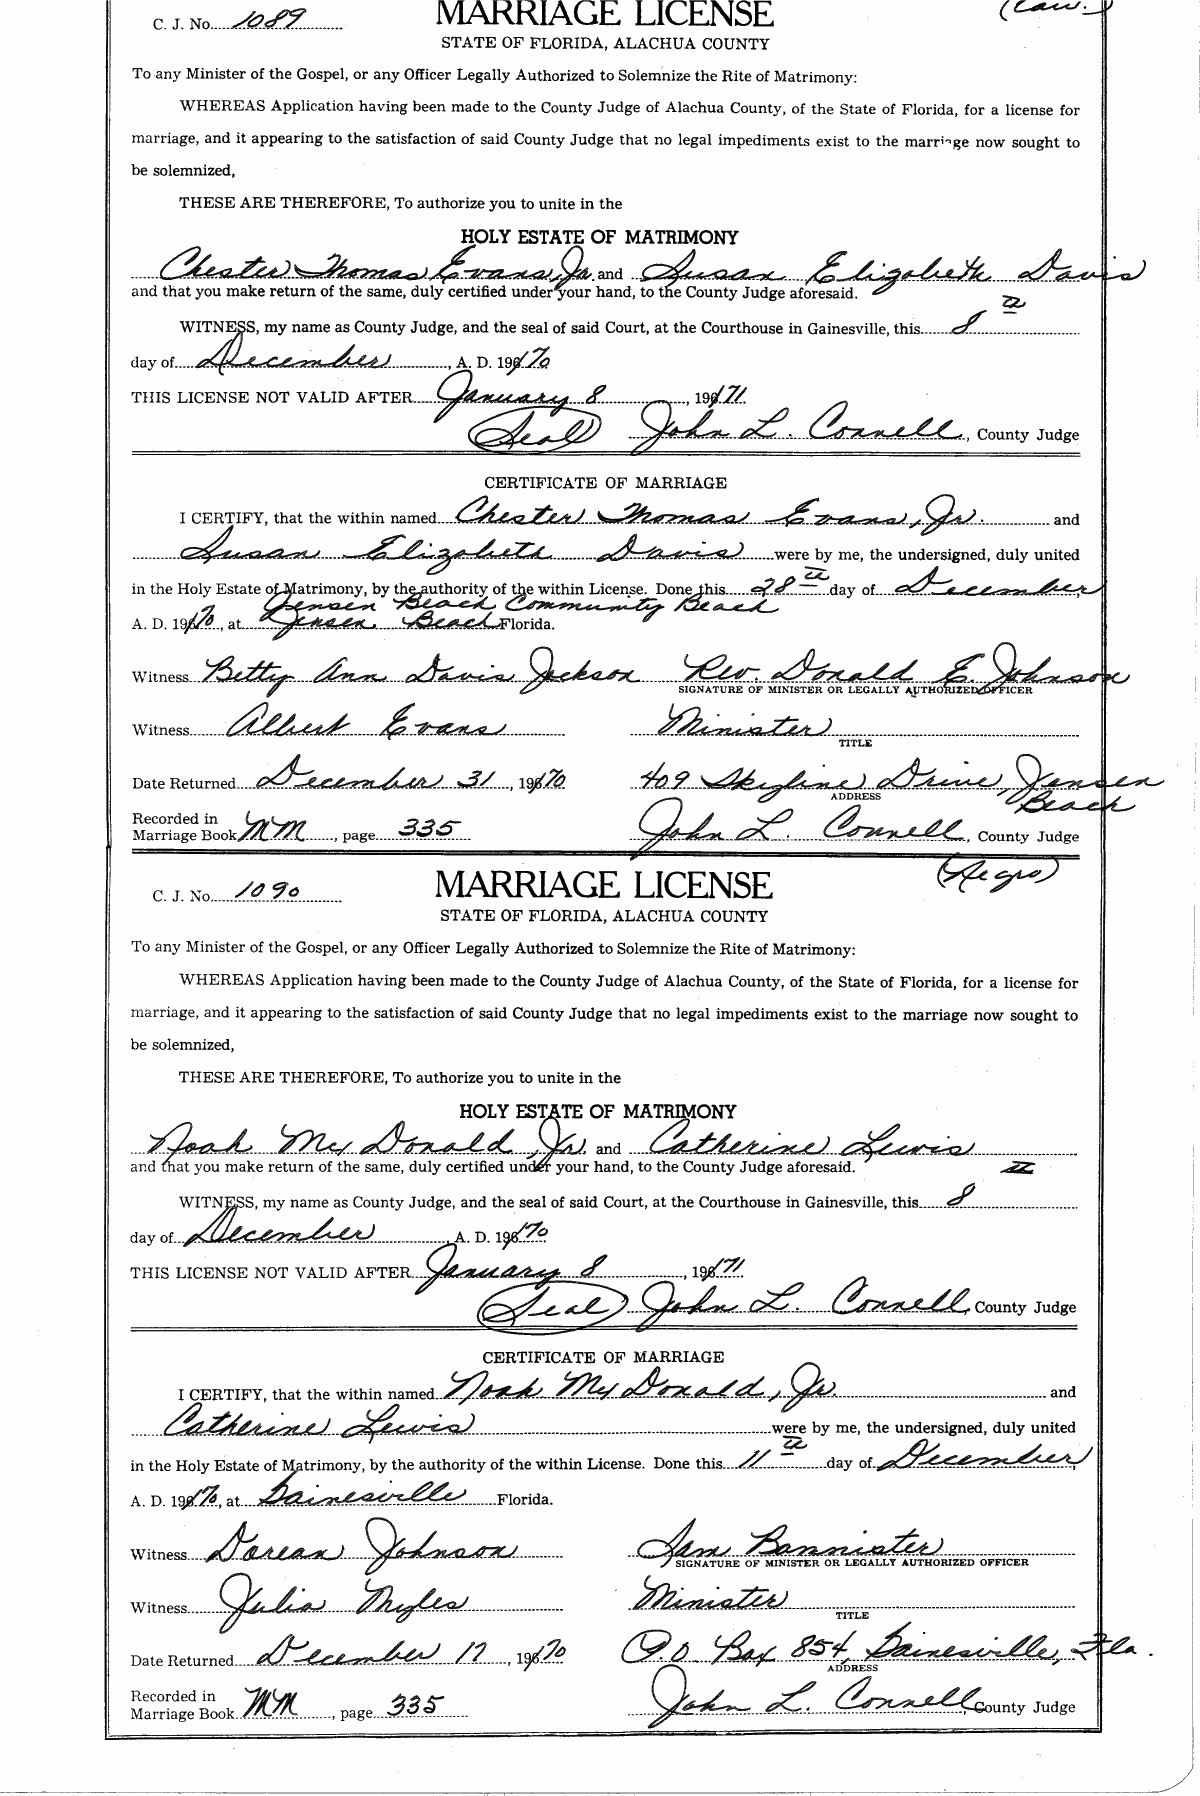 MARRIAGE LICENSE
(Cau.)
C. J. No. 1089
STATE OF FLORIDA, ALACHUA COUNTY
To any Minister of the Gospel, or any Officer Legally Authorized to Solemnize the Rite of Matrimony:
WHEREAS Application having been made to the County Judge of Alachua County, of the State of Florida, for a license for
marriage, and it appearing to the satisfaction of said County Judge that no legal impediments exist to the marriage now sought to
be solemnized,
THESE ARE THEREFORE, To authorize you to unite in the
HOLY ESTATE OF MATRIMONY
Chester Thomas Evans, Jr. and Susan Elizabeth Davis
and that you make return of the same, duly certified under your hand, to the County Judge aforesaid.
WITNESS, my name as County Judge, and the seal of said Court, at the Courthouse in Gainesville, this 8th
day of December, A. D. 1970
THIS LICENSE NOT VALID AFTER January 8, 1971
(Seal) John L. Connell, County Judge
CERTIFICATE OF MARRIAGE
I CERTIFY, that the within named Chester Thomas Evans, Jr. and
Susan Elizabeth Davis were by me, the undersigned, duly united
in the Holy Estate of Matrimony, by the authority of the within License. Done this 28th day of December,
Jensen Beach Community Beach
A. D. 1970, at Jensen Beach Florida.
Witness Betty Ann Davis Jackson Rev. Donald E. Johnson
SIGNATURE OF MINISTER OR LEGALLY AUTHORIZED OFFICER
Witness Albert Evans Minister
TITLE
Date Returned December 31, 1970 409 Skyline Drive, Jensen
ADDRESS Beach
Recorded in
Marriage Book MM, page 335 John L. Connell, County Judge
(Negro)
C. J. No. 1090 MARRIAGE LICENSE
STATE OF FLORIDA, ALACHUA COUNTY
To any Minister of the Gospel, or any Officer Legally Authorized to Solemnize the Rite of Matrimony:
WHEREAS Application having been made to the County Judge of Alachua County, of the State of Florida, for a license for
marriage, and it appearing to the satisfaction of said County Judge that no legal impediments exist to the marriage now sought to
be solemnized,
THESE ARE THEREFORE, To authorize you to unite in the
HOLY ESTATE OF MATRIMONY
Noah McDonald, Jr. and Catherine Lewis
and that you make return of the same, duly certified under your hand, to the County Judge aforesaid.
WITNESS, my name as County Judge, and the seal of said Court, at the Courthouse in Gainesville, this 8th
day of December, A. D. 1970
THIS LICENSE NOT VALID AFTER January 8, 1971
(Seal) John L. Connell, County Judge
CERTIFICATE OF MARRIAGE
I CERTIFY, that the within named Noah McDonald, Jr. and
Catherine Lewis were by me, the undersigned, duly united
in the Holy Estate of Matrimony, by the authority of the within License. Done this 11th day of December,
A. D. 1970, at Gainesville Florida.
Witness Dorean Johnson Sam Bannister
SIGNATURE OF MINISTER OR LEGALLY AUTHORIZED OFFICER
Witness Julia Myles Minister
TITLE
Date Returned December 17, 1970 P.O. Box 854, Gainesville, Fla.
ADDRESS
Recorded in
Marriage Book MM, page 335 John L. Connell, County Judge